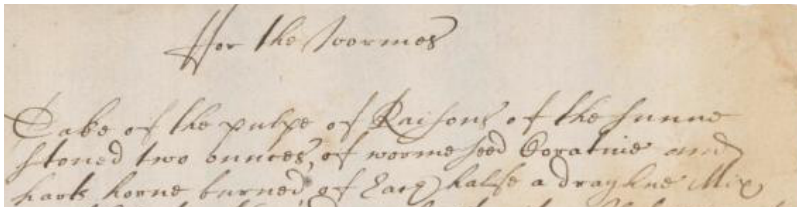 ffor the Wormes
Take of the pulpe of Raisons of the sunne
stoned two ounces, of worme seed Boratnie and
harts horne burned of Each halfe a draghne Mix